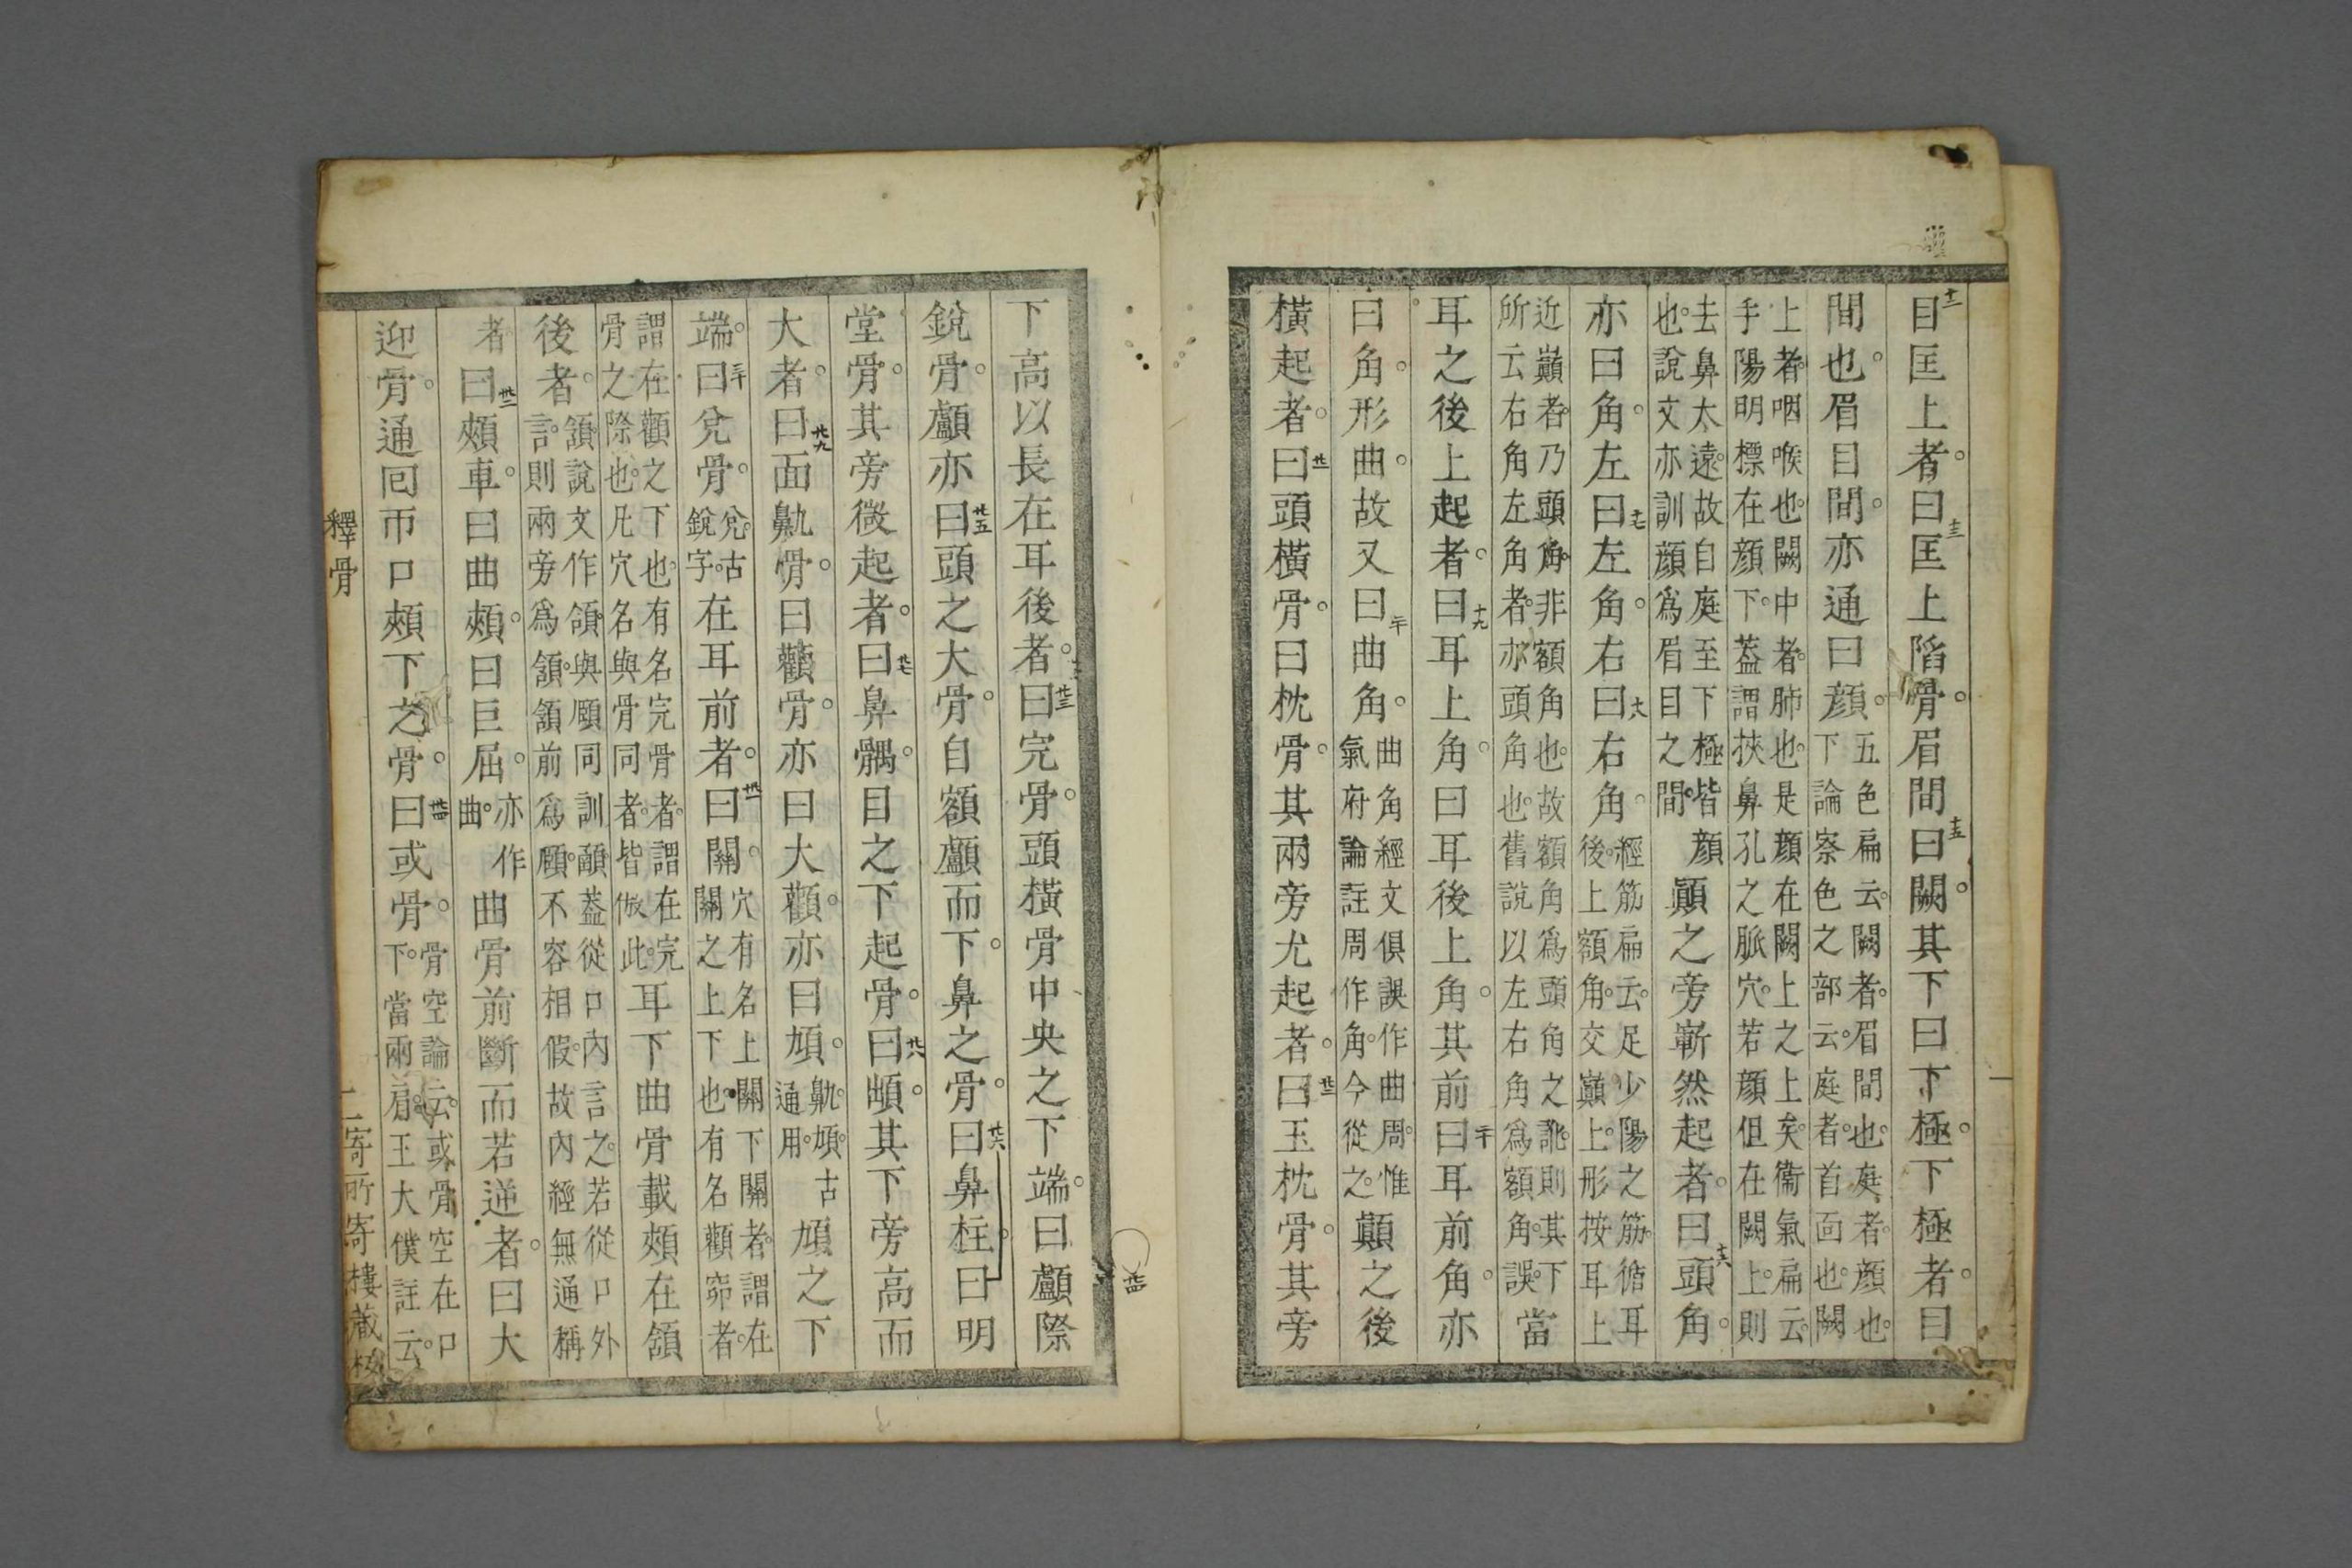 目匡上者。曰匡上陷骨。眉間曰闕。其下曰下極。下極者。目
間也。眉目間。亦通曰顏。五色扁云。闕者。眉間也。庭者。顏也。下論察色之部云。庭者。首面也。闕
上者。咽喉也。闕中者。肺也。是顏在闕上之上矣。衞氣扁云。手陽明標在顏下。蓋謂挾鼻孔之脈穴。若顏但在闕上。則
去鼻太遠。故自庭至下極皆顏也。說文亦訓顏爲眉目之間。顚之旁嶄然起者。曰頭角。
亦曰角。左曰左角。右曰右角。經筋扁云。足少陽之筋。循耳後。上額角。交巔上。形按耳上
近巔者。乃頭角。非額角也。故額角爲頭角之訛。則其下所云右角左角者。亦頭角也。舊說以左右角爲額角。誤。當
耳之後上起者。曰耳上角。曰耳後上角。其前曰耳前角。亦
曰角。形曲。故又曰曲角。曲角經文俱誤作曲周。惟氣府論註周作角。今從之。顚之後
橫起者。曰頭橫骨。曰枕骨。其兩旁尤起者。曰玉枕骨。其旁
下高以長在耳後者。曰完骨。頭橫骨中央之下端。曰顱際
銳骨。顱亦曰頭之大骨。自額顱而下。鼻之骨。曰鼻柱。曰明
堂骨。其旁微起者。曰鼻髃。目之下起骨。曰䪼。其下旁高而
大者。曰面鼽骨。曰顴骨。亦曰大顴。亦曰䪼。鼽。䪼。古通用。䪼之下
端。曰兌骨。兌。古銳字。在耳前者。曰關。穴有名上關下關者。謂在關之上下也。有名顴窌者。
謂在顴之下也。有名完骨者。謂在完骨之際也。凡穴名與骨同者。皆倣此。耳下曲骨載頰在頷
後者。頷。說文作顄。與頤同訓顄。蓋從口內言之。若從口外言。則兩旁爲頷。頷前爲頤。不容相假。故內經無通稱
者曰頰車。曰曲頰。曰巨屈。亦作曲。曲骨前斷而若逆者。曰大
迎骨。通囘帀口頰下之骨。曰或骨。骨空論云。或骨空在口下。當兩肩。王大僕註云。
釋骨
二寄所寄樓藏板